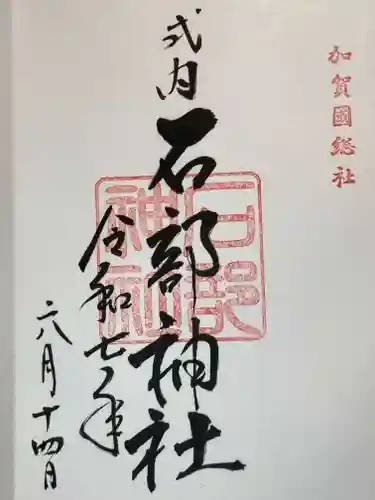 加賀國総社
式内
石部神社
石部神社
令和七年
六月十四日